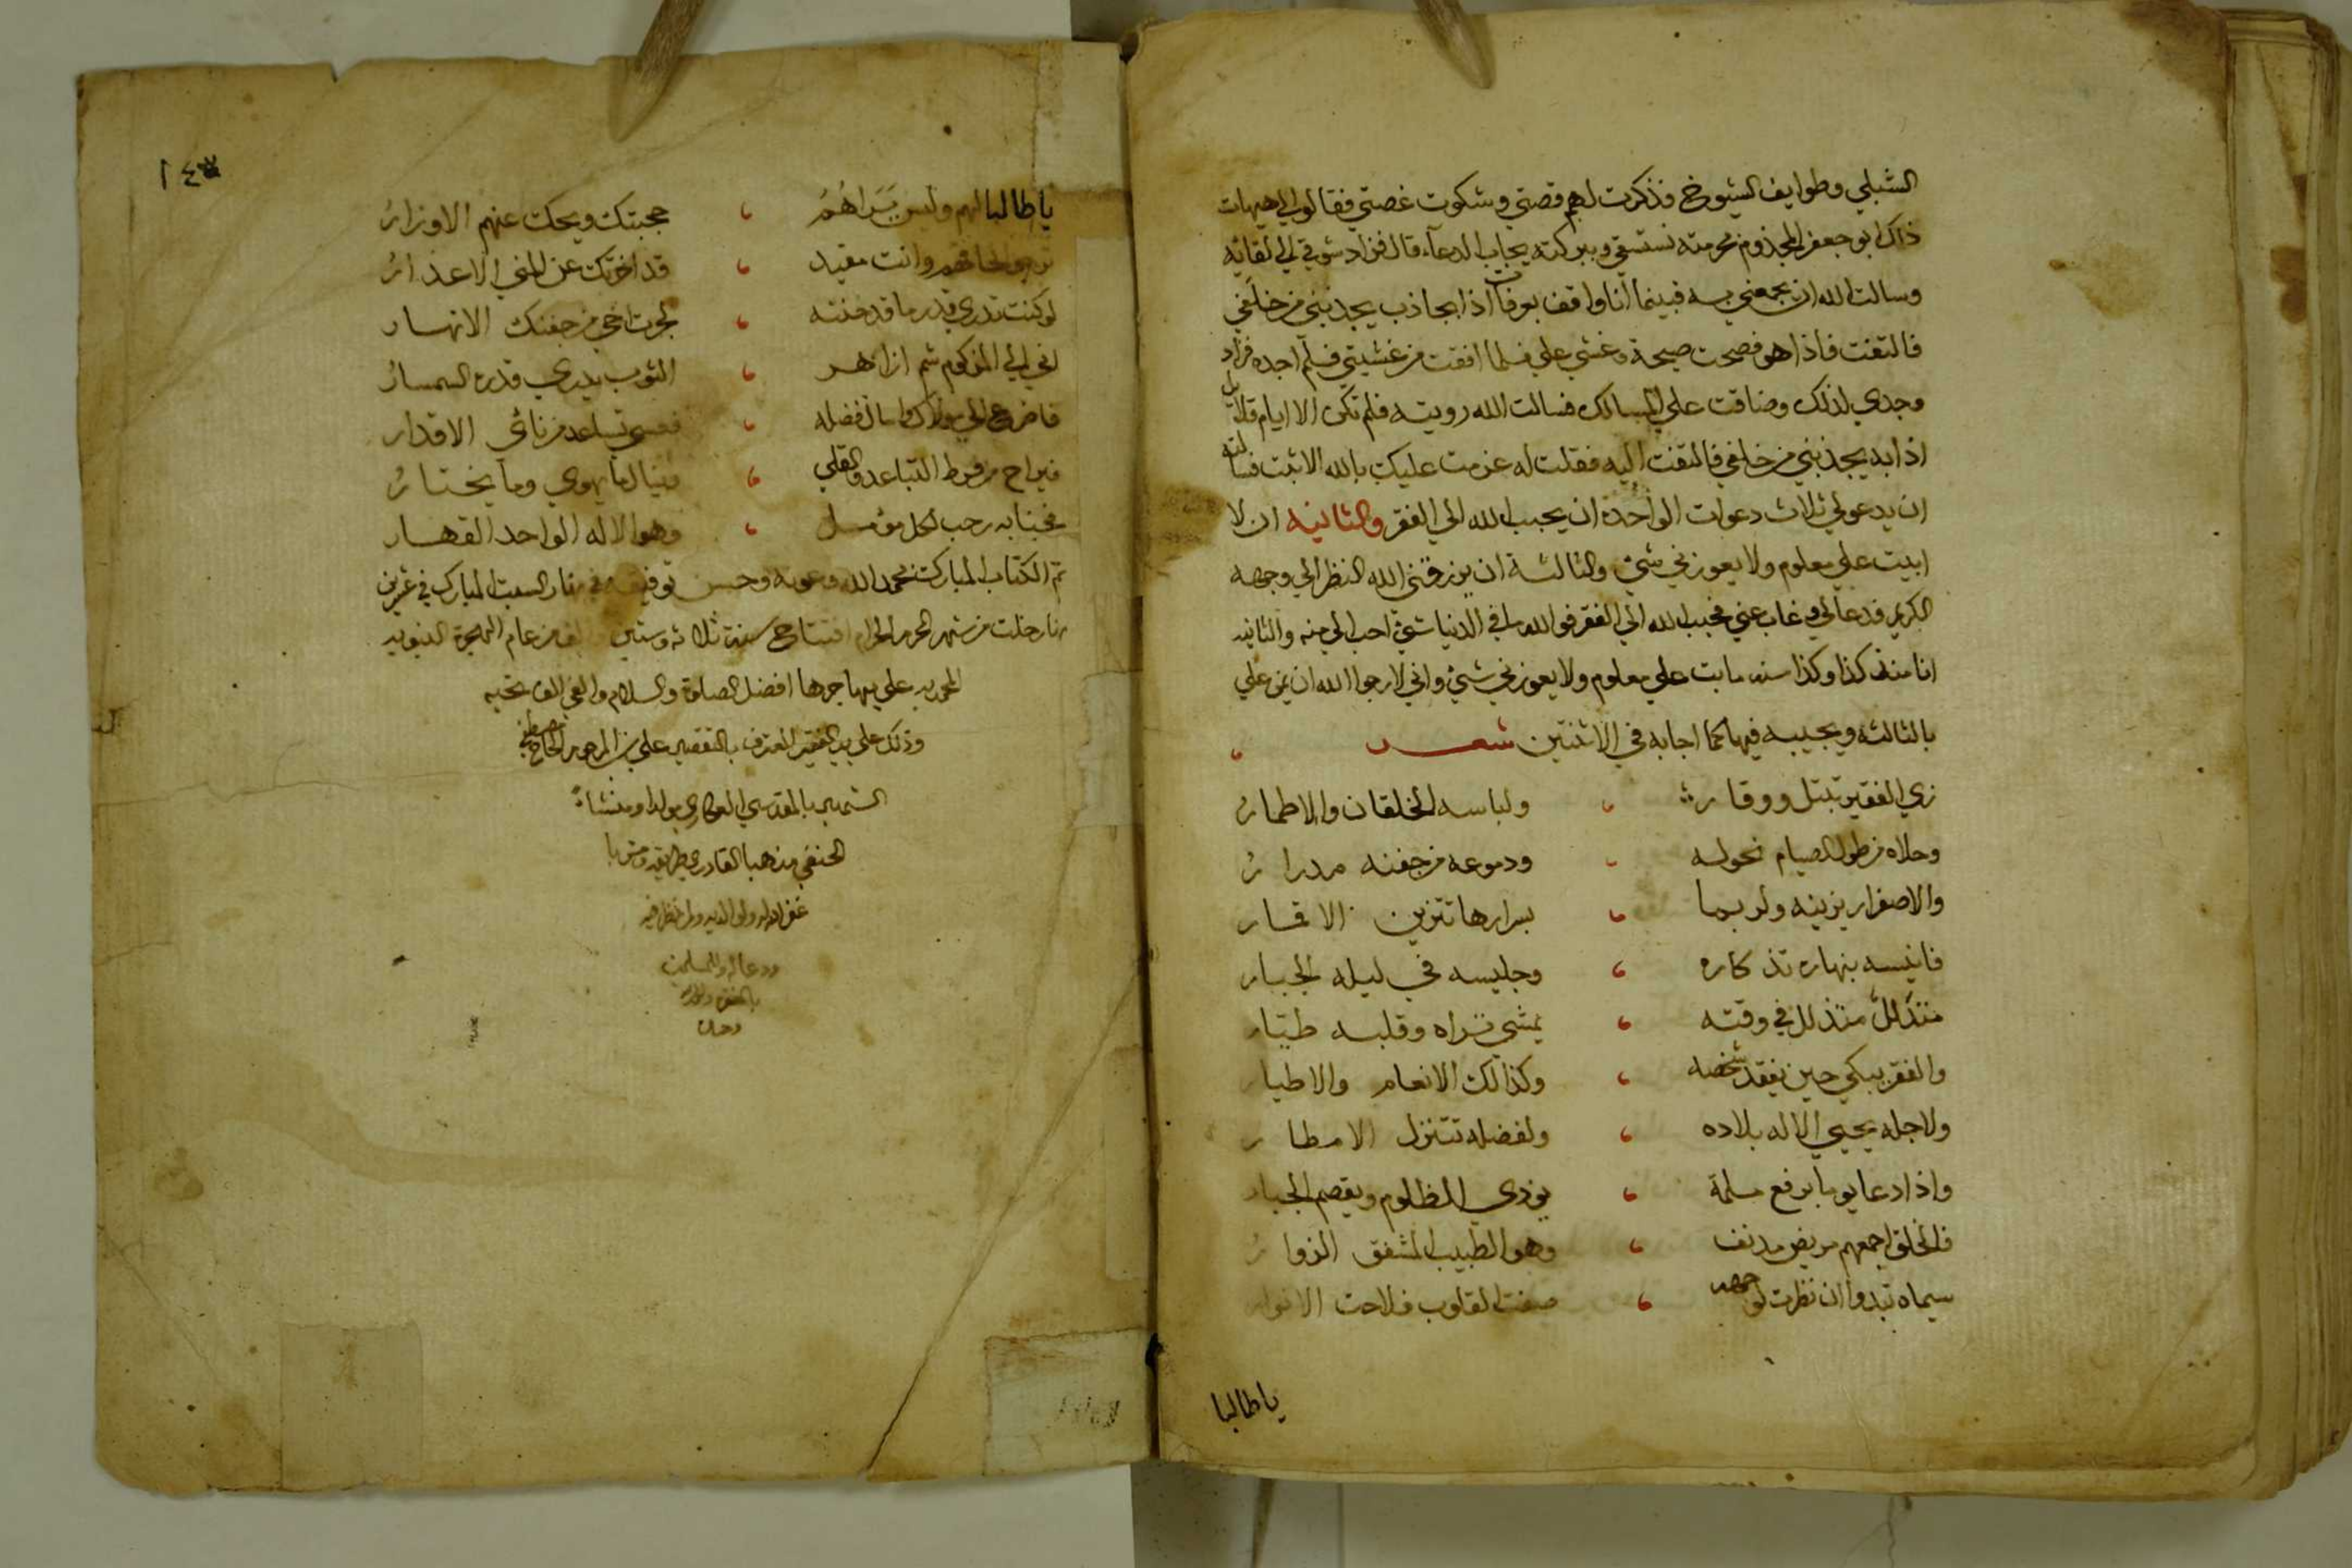 الشبلي وطوايف الشيوخ فذكرت لهم قصتي وشكوت غصتي فقالوا لي هيهات
ذاك ابو جعفر المجذوم بحرمته نستسقي وببركته يجاب الدعاء قال فزاد شوقي الي لقائه
وسالت الله ان يجمعني به فبينما انا واقف بعرفات اذا بجاذب يجذبني من خلفي
فالتفت فاذا هو فصحت صيحة وغشي علي فلما افقت من غشيتي فلم اجده فزاد
وجدي لذلك وضاقت علي المسالك فسالت الله رويته فلم تكن الا ايام قلائل
اذا بيد يجذبني من خلفي فالتفت اليه فقلت له عزمت عليك بالله الا ثبت فسالته
ان يدعو لي ثلاث دعوات الواحدة ان يحبب الله الي الفقر والثانيه ان لا
ابيت علي معلوم ولا يعوزني شيء والثالثة ان يرزقني الله النظر الي وجهه
الكريم فدعا لي وغاب عني فحبب الله الي الفقر فوالله ما في الدنيا شيء احب الي منه والثانيه
انا منذ كذا وكذا سنه ما بت علي معلوم ولا يعوزني شيء واني لارجوا الله ان يمن علي
بالثالثه ويجيبه فيها كما اجابه في الاثنتين شعر
زي الفقير تبتل ووقار ولباسه الخلقان والاطمار
وحلاه من طول الصيام نحوله ودموعه من جفنه مدرار
والاصفرار يزينه ولربما بسرارها تتزين الاقمار
فانيسه بنهاره تذكاره وجليسه في ليله الجبار
متذلل في وقته يمشي تراه وقلبه طيار
والفقر يبكي حين يفقد شخصه وكذالك الانعام والاطيار
ولاجله يحيي الاله بلاده ولفضله تتنزل الامطار
واذا دعا يوما برفع مسلمة المظلوم ويقصم الجبار
فالخلق اجمعهم مريض مدنف وهو الطبيب المشفق الزوار
سيماه تبدوا ان نظرت لوجهه صفت القلوب فلاحت الانوار
يا طالبا
١٤٧
يا طالبا لهم وليس يراهم حجبتك ويحك عنهم الاوزار
وانت مقيد قد اخرتك عن المني الاعذار
لو كنت تدري قدر ما قد فتته لجرت اخي من جفنك الانهار
المزكوم شم ازاهر الثوب يدري قدره السمسار
فاضرع الي مولاك واسال فضله فعسي تساعد من نائي الاقدار
من فرط التباعد والقلي وينال ما يهوي وما يختار
فجنابه رحب لكل مؤمل وهو الاله الواحد القهار
تم الكتاب المبارك بحمد الله وعونه وحسن توفيقه في نهار السبت المبارك في
خلت من شهر المحرم الحرام افتتاح سنة ثلاثه وستين والف من عام الهجرة النبويه
المحمديه علي مهاجرها افضل الصلوة والسلام والفي الف تحيه
وذلك علي يد الفقير المعترف بالتقصير علي بن المرحوم الحاج مصطفي
الشهير بالمقدسي مولدا ومنشاءً
الحنفي مذهبا القادري طريقه ومشربا
غفر الله له ولوالديه ولمن نظر فيه
ودعا له وللمسلمين